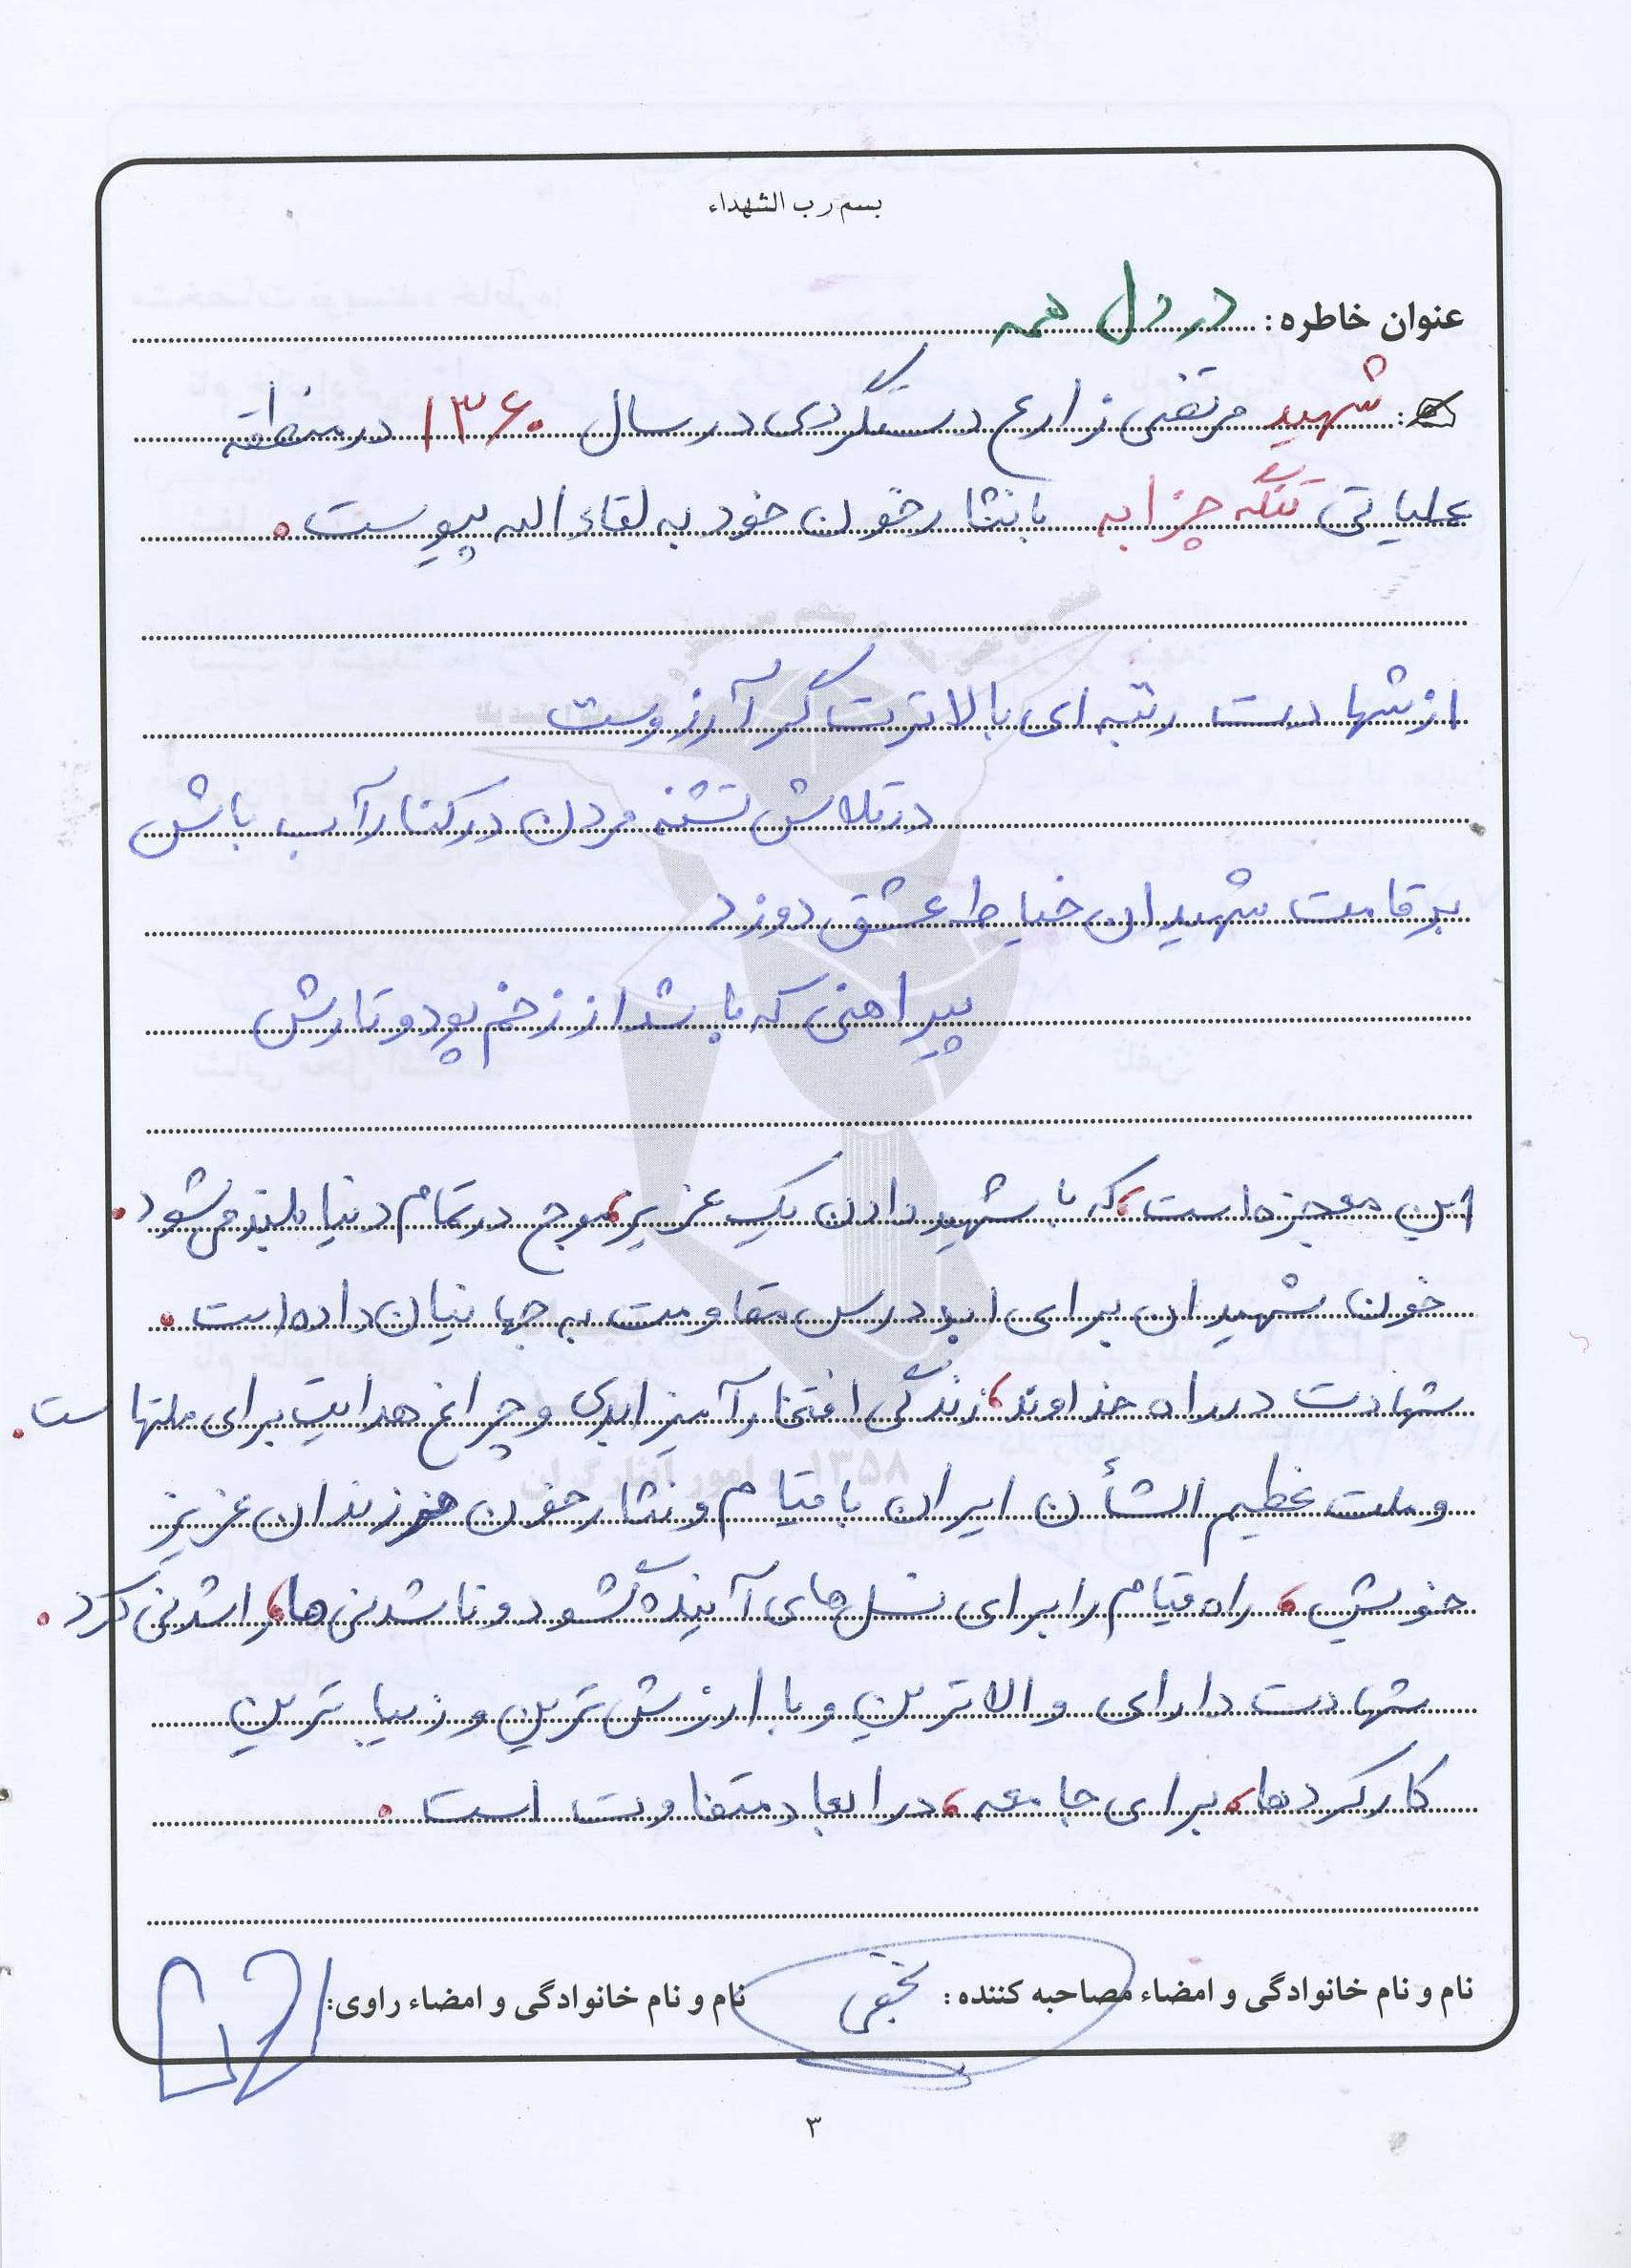 بسم رب الشهداء
عنوان خاطره: در دل همه
شهید مرتضی زارع دستگردی در سال ۱۳۶۰ در منطقه
عملیاتی تنگه چزابه با نثار خون خود به لقاء الله پیوست.
از شهادت رتبه ای بالاترت گر آرزوست
در تلاش تشنه مردن در کنار آب باش
بر قامت شهیدان خیاط عشق دوزد
پیراهنی که باشد از زخم پود و تارش
این معجزه است، که با شهید دادن یک عزیز، موج در تمام دنیا بلند می شود.
خون شهیدان برای ابد درس مقاومت به جهانیان داده است.
شهادت در راه خداوند، زندگی افتخار آمیز ابدی و چراغ هدایت برای ملتهاست.
و ملت عظیم الشأن ایران با قیام و نثار خون فرزندان عزیز
خویش، راه قیام را برای نسل های آینده گشود و ناشدنی ها، را شدنی کرد.
شهادت دارای والاترین و با ارزش ترین و زیبا ترین
کارکردها، برای جامعه، در ابعاد متفاوت است.
نام و نام خانوادگی و امضاء مصاحبه کننده: نام و نام خانوادگی و امضاء راوی:
۳